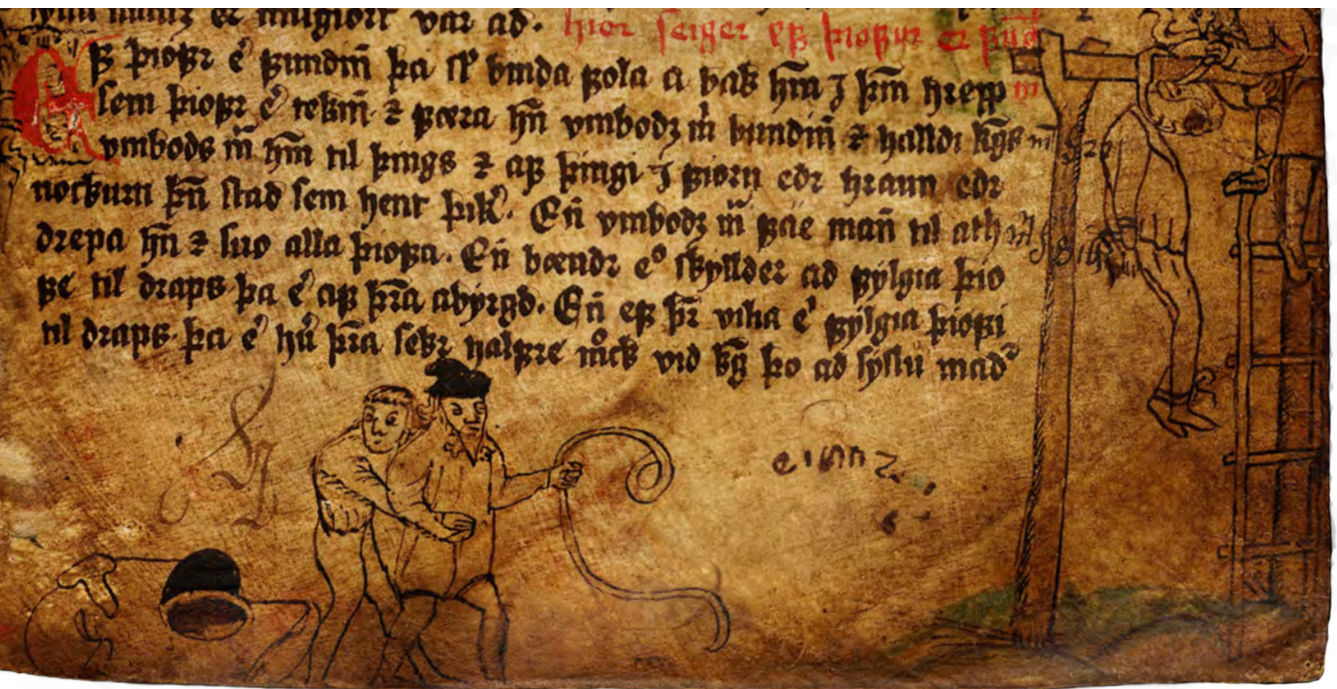 var ad. hier seiger ef þiofur er fūd
Ef þiofr e᷎ fundin̄ þa sl̛ binda fola a bak hm̄ J þm̄ hrepp
sem þiofr e᷎ tekin̄ ⁊ færa hn̄ vmbodz m̄ bundin̄ ⁊ halldi kgs
vmbods m̄ hm̄ til þings ⁊ af þingi J fiorn edr hraun edr
nockurn þn̄ stad sem hent þik᷎. En̄ vmbodz m̄ fae man̄ til ath
drepa hn̄ ⁊ suo alla þiofa. En̄ bændr e° skyllder ad fylgia þio
fe til draps þa e᷎ af þra abyrgd. En̄ ef þr̄ vilia e᷎ fylgia þiofi
til draps. þa e᷎ hu᷎ þra sekr halfre mck vid kg þo ad syslu mad